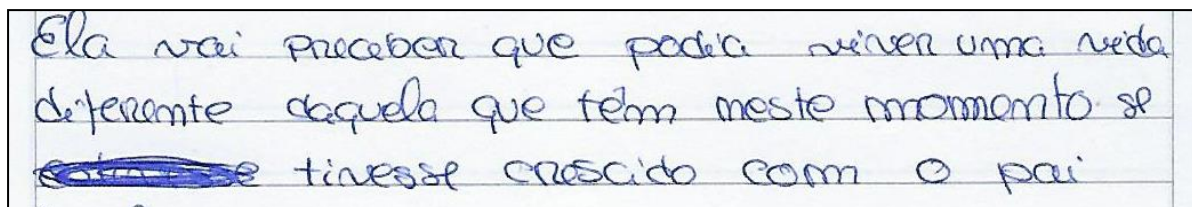 Ela vai preceber que podia viver uma vida
diferente daquela que têm neste momento se
tivesse crescido com o pai